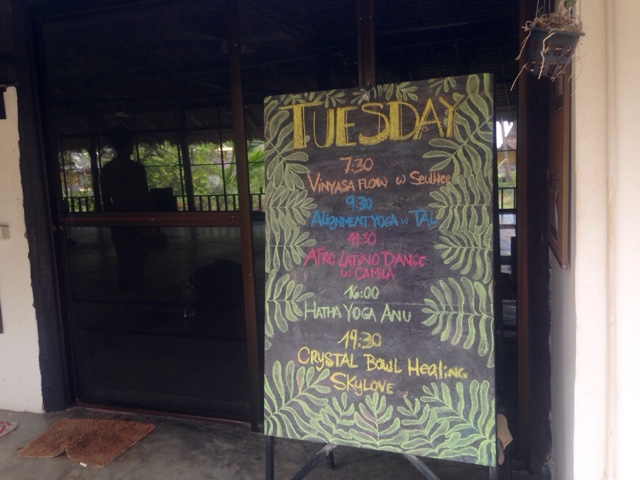 TUESDAY
7:30
VINYASA FLOW W SEULHEE
9.30
ALIGNMENT YOGA W TAL
11:30
AFRO LATINO DANCE
W CAMILA
16:00
HATHA YOGA ANU
19:30
CRYSTAL BOWL HEALING
SKYLOVE